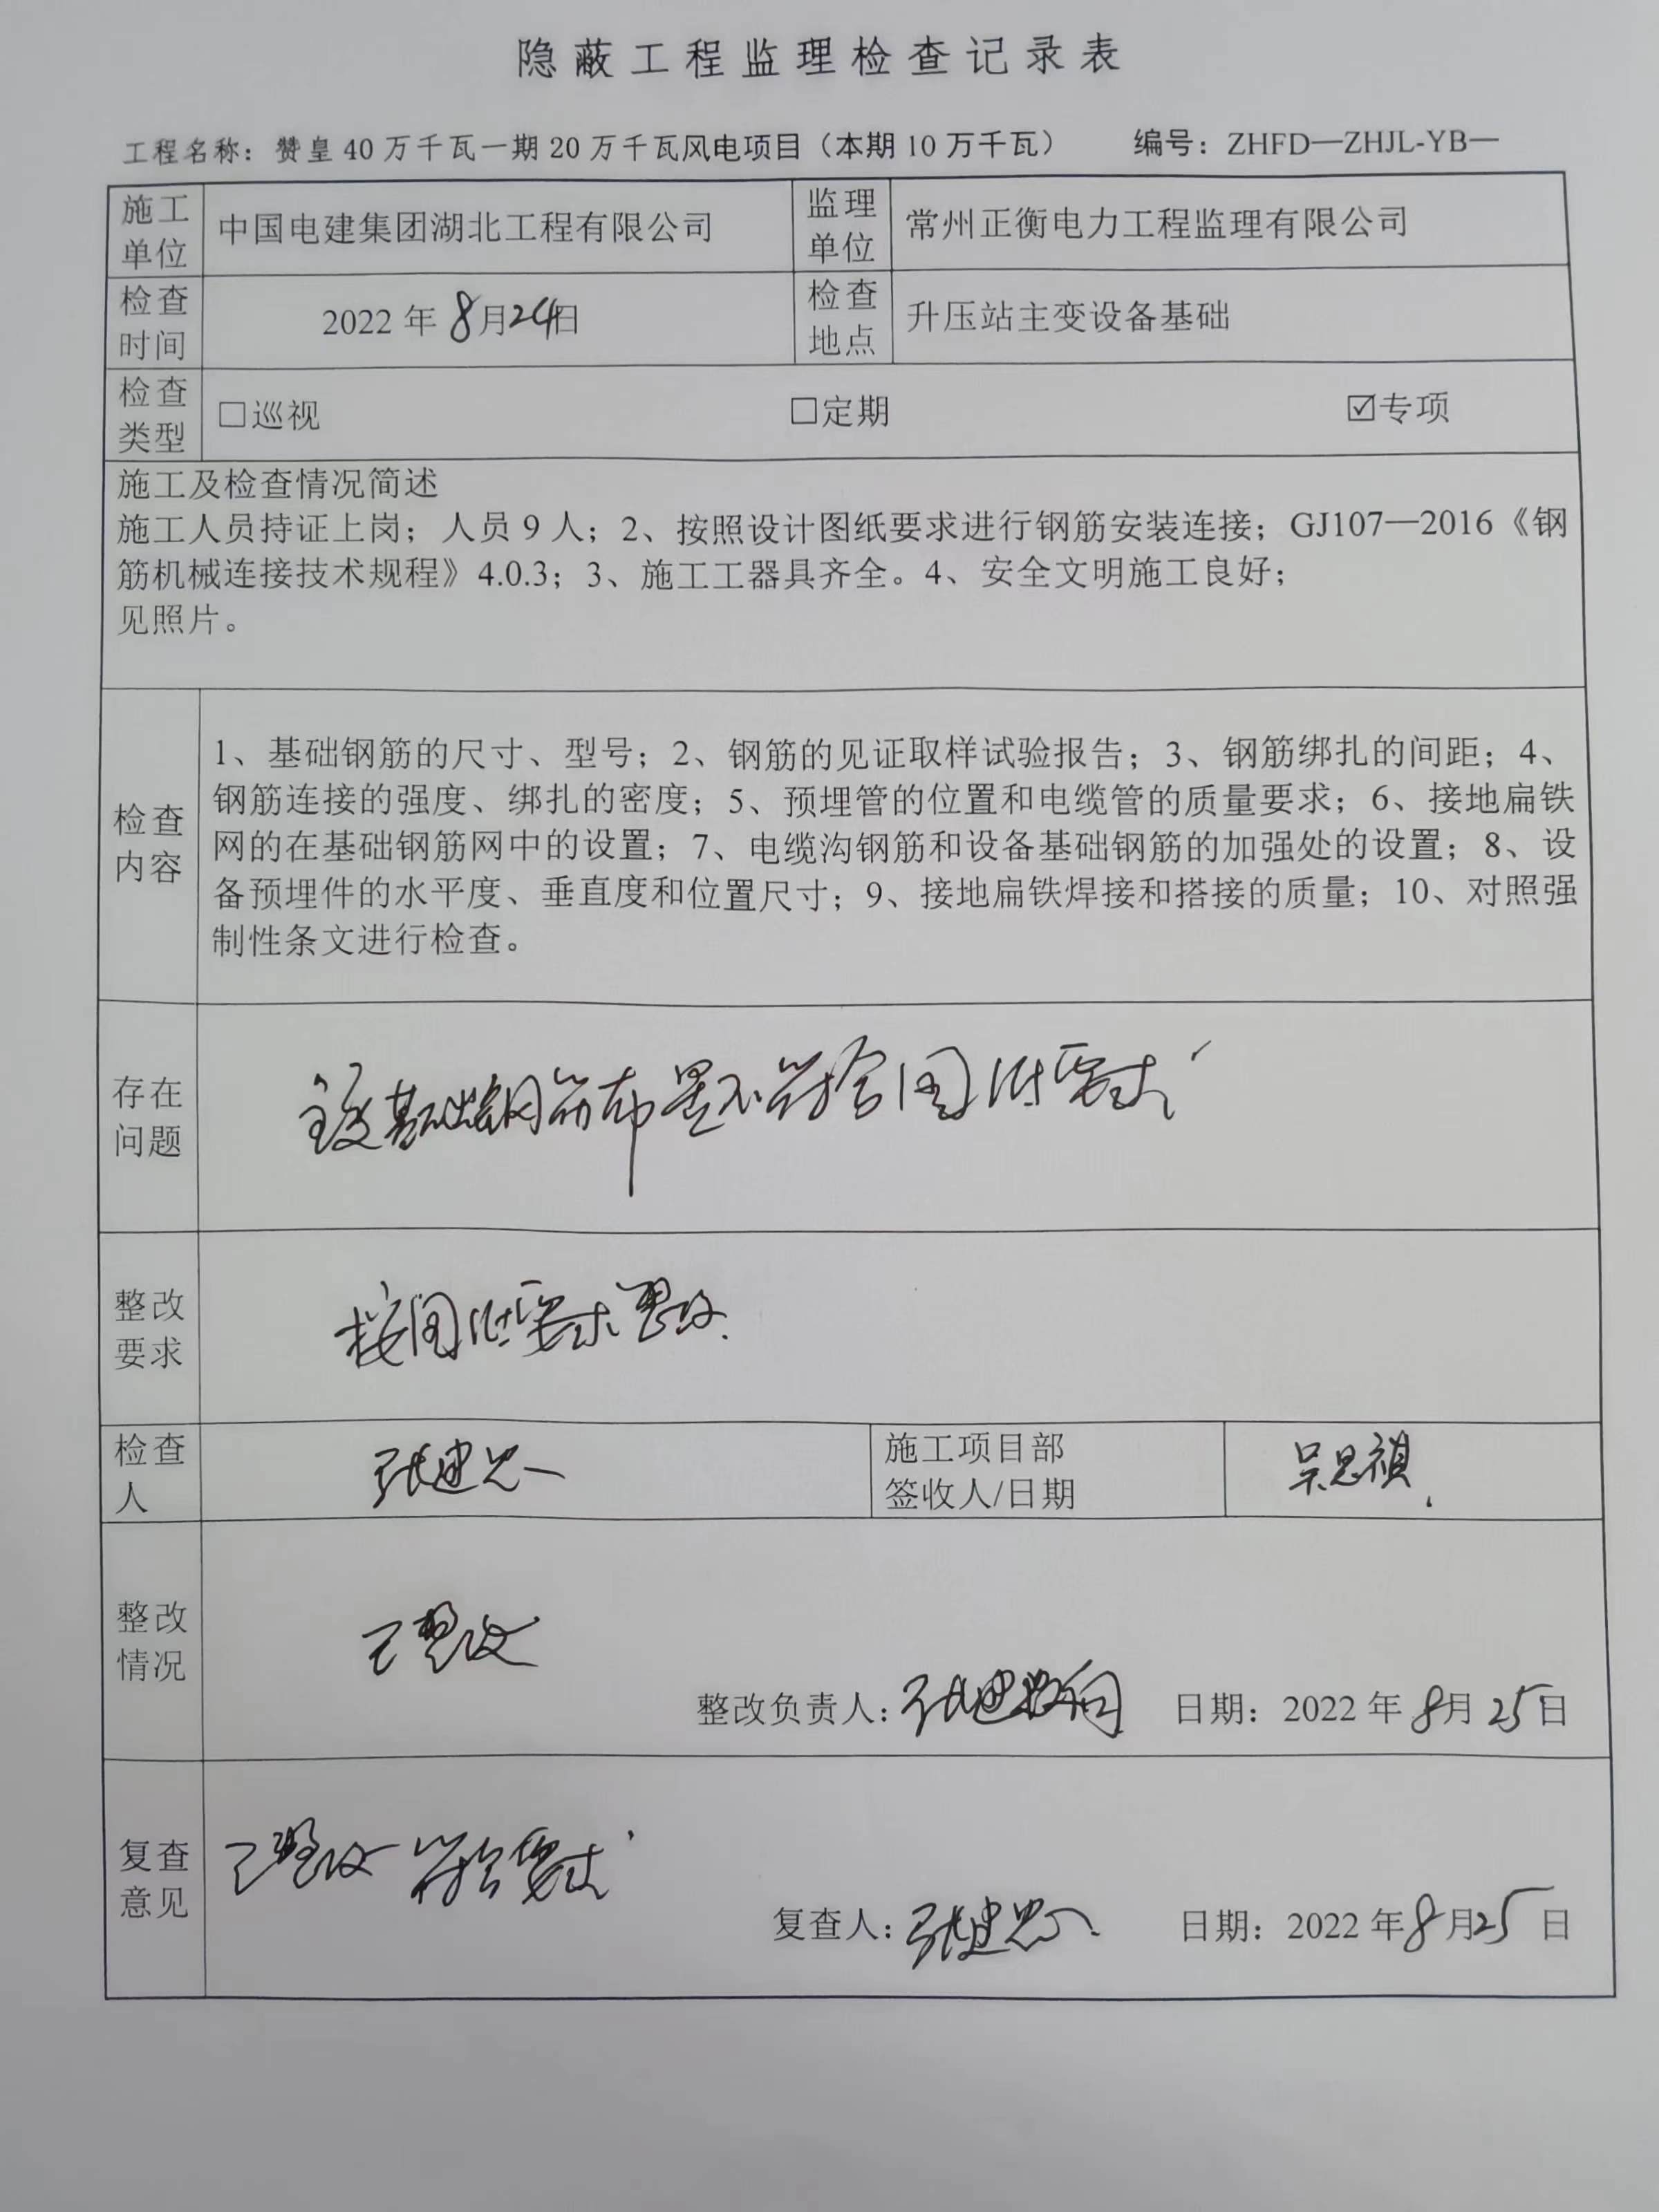 隐蔽工程监理检查记录表
工程名称：赞皇40万千瓦一期20万千瓦风电项目（本期10万千瓦） 编号：ZHFD—ZHJL-YB—
施工单位 中国电建集团湖北工程有限公司 监理单位 常州正衡电力工程监理有限公司
检查时间 2022年8月24日 检查地点 升压站主变设备基础
检查类型 □巡视 □定期 ☑专项
施工及检查情况简述
施工人员持证上岗；人员9人；2、按照设计图纸要求进行钢筋安装连接；GJ107—2016《钢
筋机械连接技术规程》4.0.3；3、施工工器具齐全。4、安全文明施工良好；
见照片。
检查内容
1、基础钢筋的尺寸、型号；2、钢筋的见证取样试验报告；3、钢筋绑扎的间距；4、
钢筋连接的强度、绑扎的密度；5、预埋管的位置和电缆管的质量要求；6、接地扁铁
网的在基础钢筋网中的设置；7、电缆沟钢筋和设备基础钢筋的加强处的设置；8、设
备预埋件的水平度、垂直度和位置尺寸；9、接地扁铁焊接和搭接的质量；10、对照强
制性条文进行检查。
存在问题 主变基础钢筋布置不符合图纸要求
整改要求 按图纸要求整改.
检查人 张建忠 施工项目部
签收人/日期 吴思祺
整改情况 已整改
整改负责人： 日期：2022年8月25日
复查意见 已整改 符合要求
复查人：张建忠 日期：2022年8月25日